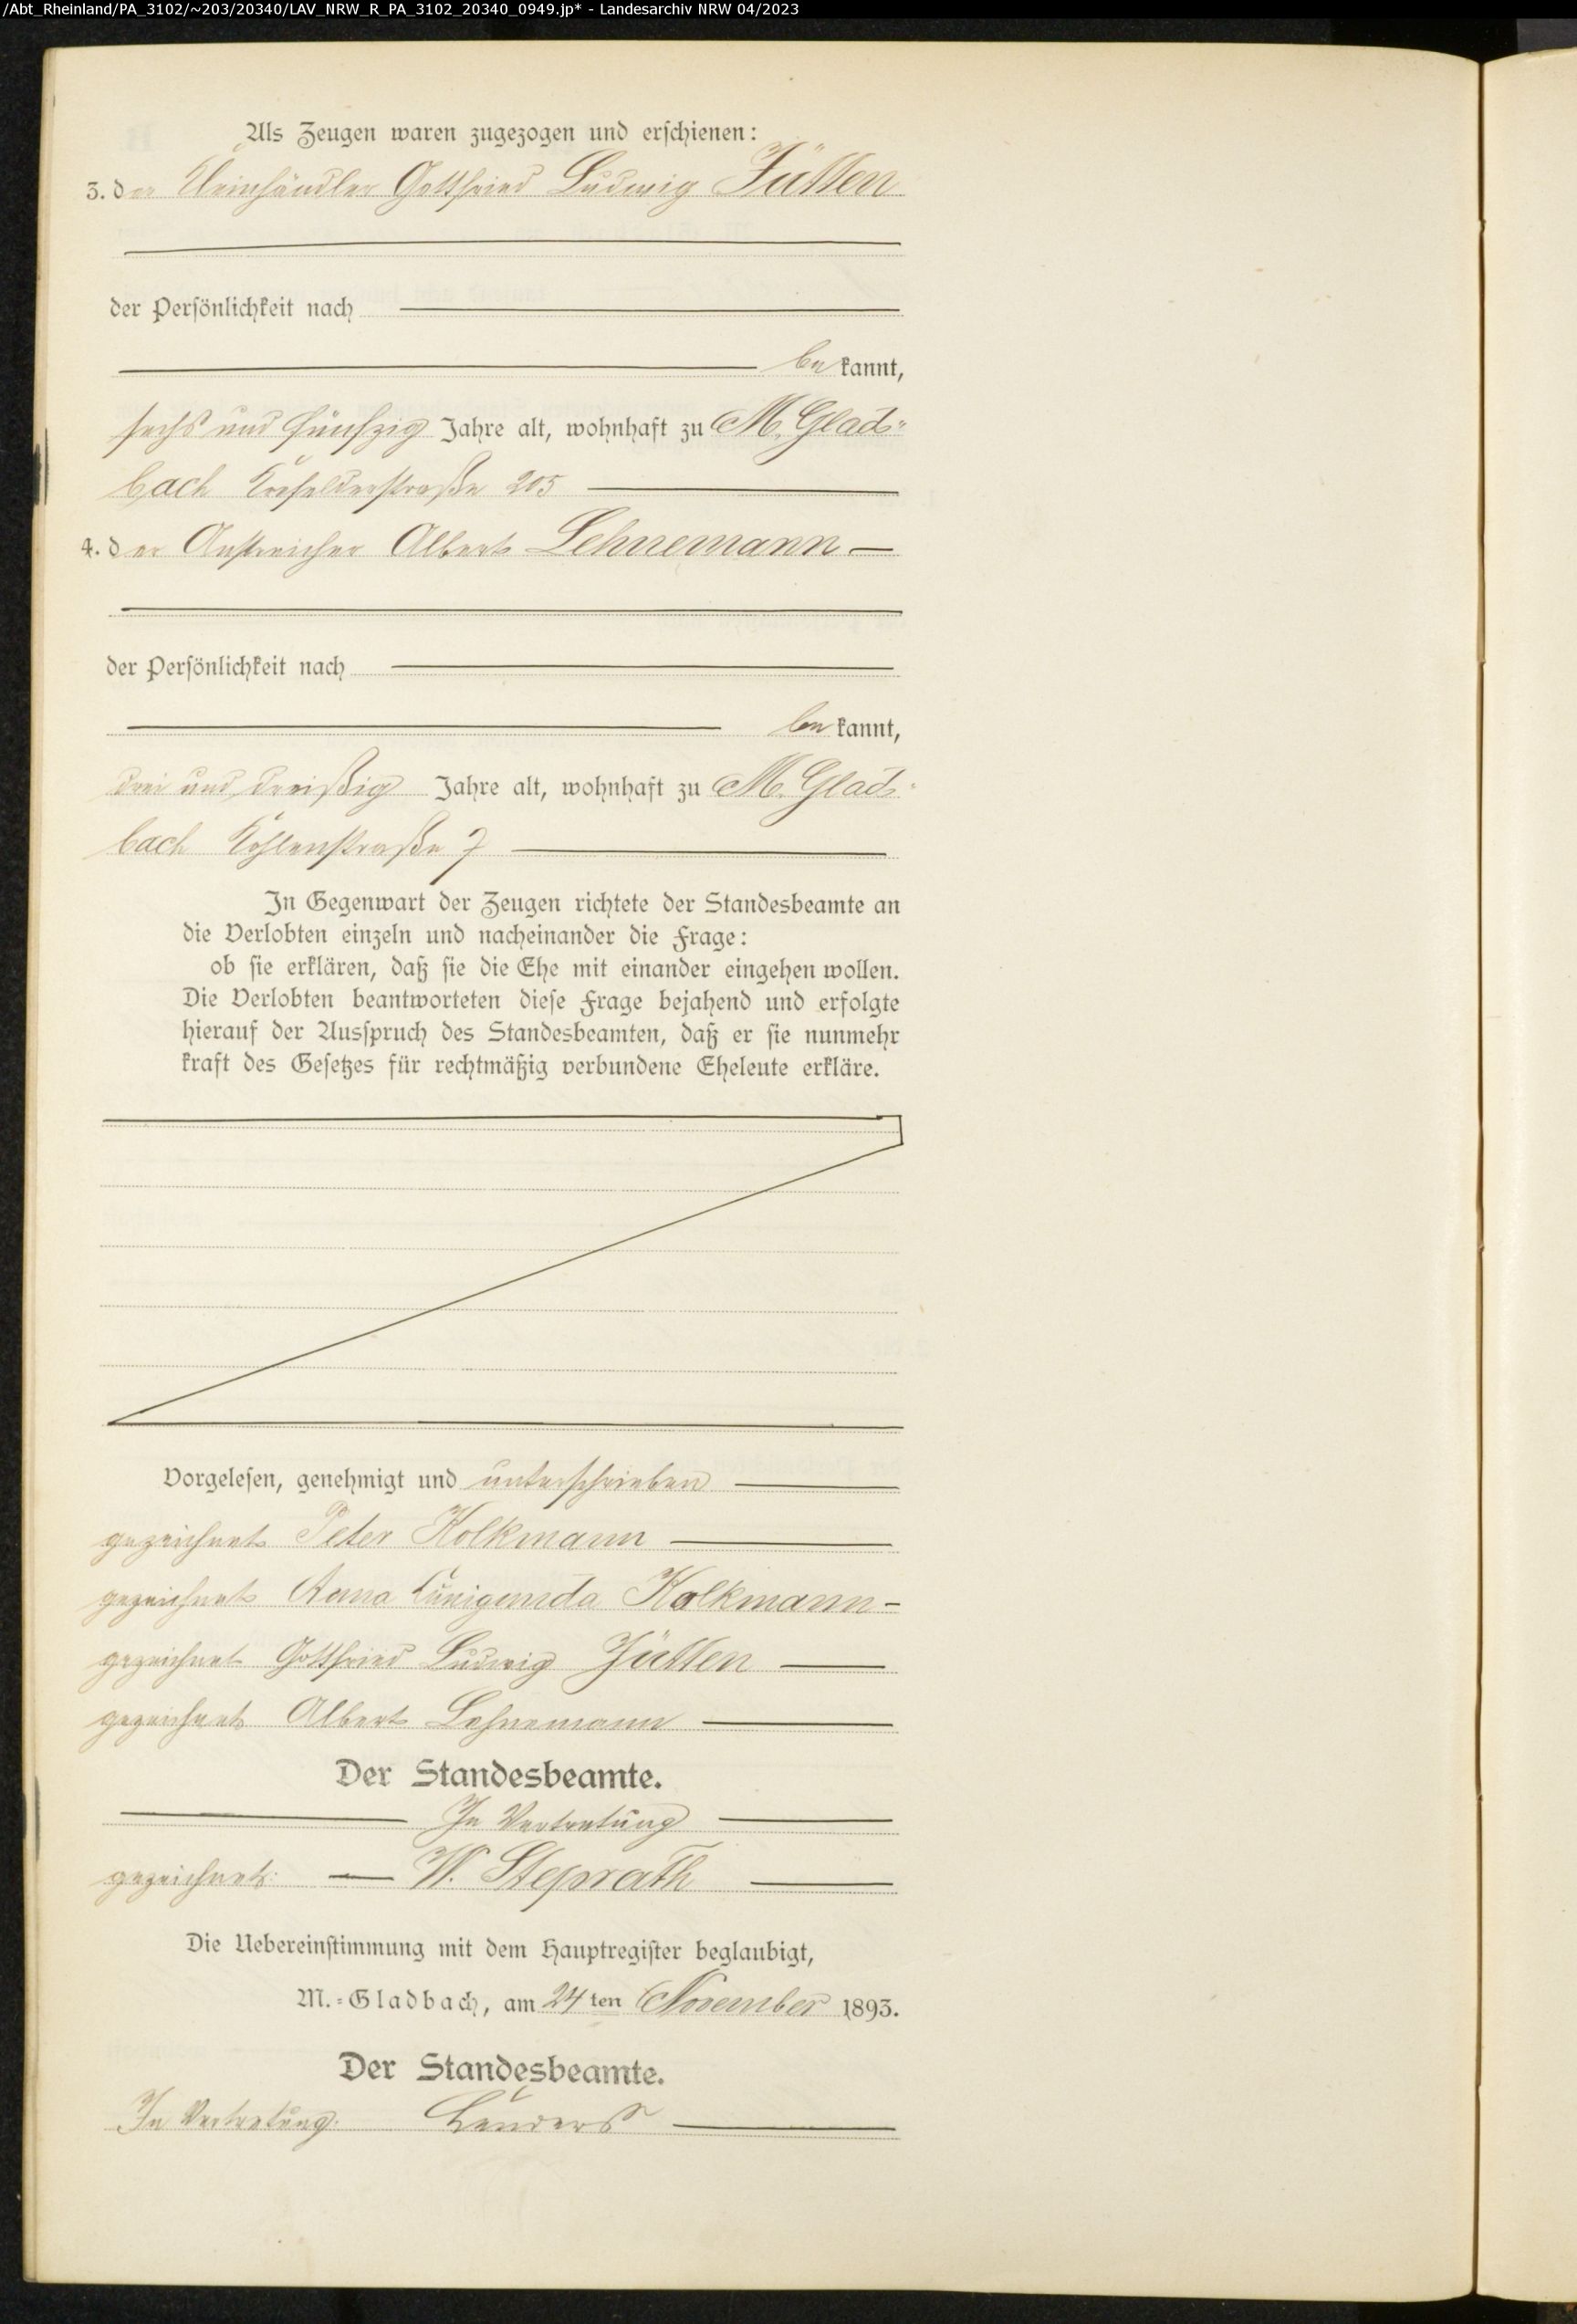 /Abt_Rheinland/PA_3102/~203/20340/LAV_NRW_R_PA_3102_20340_0949.jp* - Landesarchiv NRW 04/2023
Als Zeugen waren zugezogen und erschienen:
3. der Kleinhändler Gottfried Ludwig Jütten
der Persönlichkeit nach
be kannt,
sechs und fünfzig Jahre alt, wohnhaft zu M. Glad-
bach Krefelderstraße 205
4. der Anstreicher Albert Lehnemann
der Persönlichkeit nach
be kannt,
drei und dreißig Jahre alt, wohnhaft zu M. Glad-
bach Kohlenstraße 7
In Gegenwart der Zeugen richtete der Standesbeamte an
die Verlobten einzeln und nacheinander die Frage:
ob sie erklären, daß sie die Ehe mit einander eingehen wollen.
Die Verlobten beantworteten diese Frage bejahend und erfolgte
hierauf der Ausspruch des Standesbeamten, daß er sie nunmehr
kraft des Gesetzes für rechtmäßig verbundene Eheleute erkläre.
Vorgelesen, genehmigt und unterschrieben
gezeichnet Peter Kolkmann
gezeichnet Anna Kunigunda Kolkmann
gezeichnet Gottfried Ludwig Jütten
gezeichnet Albert Lehnemann
Der Standesbeamte.
In Vertretung
gezeichnet: W. Steprath
Die Uebereinstimmung mit dem Hauptregister beglaubigt,
M.-Gladbach, am 24 ten November 1893.
Der Standesbeamte.
In Vertretung: